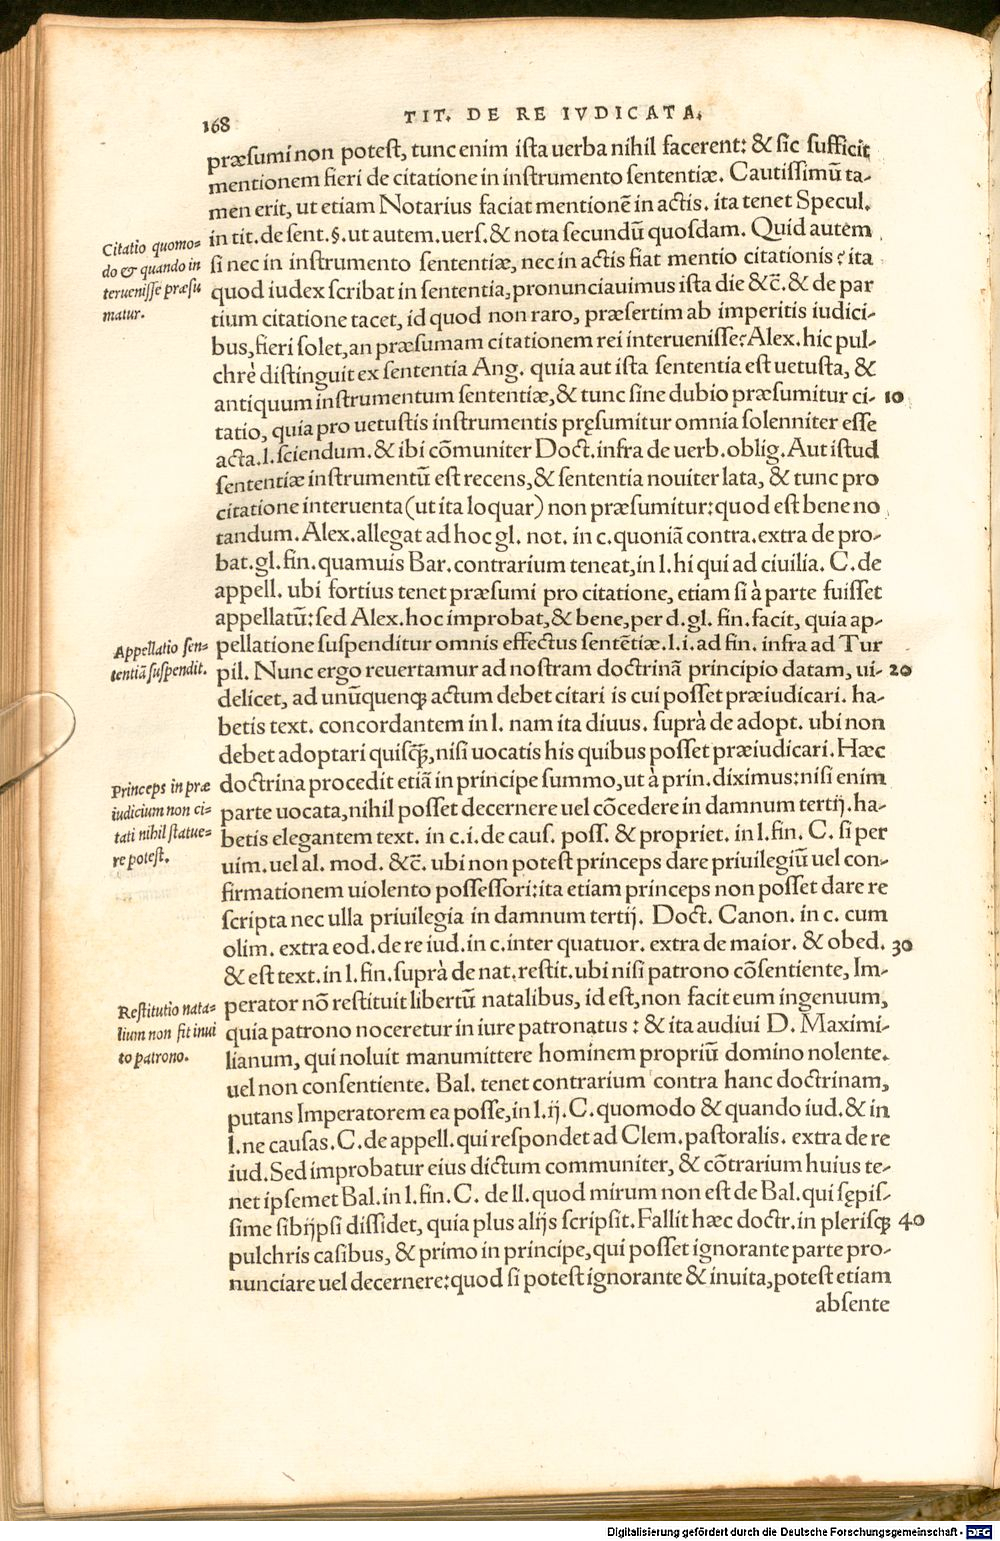 168
TIT. DE RE IVDICATA.
præsumi non potest, tunc enim ista uerba nihil facerent: & sic sufficit
mentionem fieri de citatione in instrumento sententiæ. Cautissimũ ta-
men erit, ut etiam Notarius faciat mentionẽ in actis. ita tenet Specul.
in tit. de sent. §. ut autem. uers. & nota secundũ quosdam. Quid autem
Citatio quomo=
do & quando in
teruenisse præsu
matur.
si nec in instrumento sententiæ, nec in actis fiat mentio citationis? ita
quod iudex scribat in sententia, pronunciauimus ista die &c̃. & de par
tium citatione tacet, id quod non raro, præsertim ab imperitis iudici-
bus, fieri solet, an præsumam citationem rei interuenisse? Alex. hic pul-
chrè distinguit ex sententia Ang. quia aut ista sententia est uetusta, &
antiquum instrumentum sententiæ, & tunc sine dubio præsumitur ci- 10
tatio, quia pro uetustis instrumentis pręsumitur omnia solenniter esse
acta. l. sciendum. & ibi cõmuniter Doct. infra de uerb. oblig. Aut istud
sententiæ instrumentũ est recens, & sententia nouiter lata, & tunc pro
citatione interuenta (ut ita loquar) non præsumitur: quod est bene no
tandum. Alex. allegat ad hoc gl. not. in c. quoniã contra. extra de pro-
bat. gl. fin. quamuis Bar. contrarium teneat, in l. hi qui ad ciuilia. C. de
appell. ubi fortius tenet præsumi pro citatione, etiam si à parte fuisset
appellatũ: sed Alex. hoc improbat, & bene, per d. gl. fin. facit, quia ap-
Appellatio sen=
tentiã suspendit.
pellatione suspenditur omnis effectus sentẽtiæ. l. i. ad fin. infra ad Tur
pil. Nunc ergo reuertamur ad nostram doctrinã principio datam, ui- 20
delicet, ad unũquenq; actum debet citari is cui posset præiudicari. ha-
betis text. concordantem in l. nam ita diuus. suprà de adopt. ubi non
debet adoptari quisq̃, nisi uocatis his quibus posset præiudicari. Hæc
Princeps in præ
iudicium non ci=
tati nihil statue=
re potest.
doctrina procedit etiã in principe summo, ut à prin. diximus: nisi enim
parte uocata, nihil posset decernere uel cõcedere in damnum tertij. ha-
betis elegantem text. in c. i. de caus. poss. & propriet. in l. fin. C. si per
uim. uel al. mod. &c̃. ubi non potest princeps dare priuilegiũ uel con-
firmationem uiolento possessori: ita etiam princeps non posset dare re
scripta nec ulla priuilegia in damnum tertij. Doct. Canon. in c. cum
olim. extra eod. de re iud. in c. inter quatuor. extra de maior. & obed. 30
& est text. in l. fin. suprà de nat. restit. ubi nisi patrono cõsentiente, Im-
Restitutio nata=
lium non fit inui
to patrono.
perator nõ restituit libertũ natalibus, id est, non facit eum ingenuum,
quia patrono noceretur in iure patronatus: & ita audiui D. Maximi-
lianum, qui noluit manumittere hominem propriũ domino nolente.
uel non consentiente. Bal. tenet contrarium contra hanc doctrinam,
putans Imperatorem ea posse, in l. ij. C. quomodo & quando iud. & in
l. ne causas. C. de appell. qui respondet ad Clem. pastoralis. extra de re
iud. Sed improbatur eius dictum communiter, & cõtrarium huius te-
net ipsemet Bal. in l. fin. C. de ll. quod mirum non est de Bal. qui sępis-
sime sibijpsi dissidet, quia plus alijs scripsit. Fallit hæc doctr. in plerisq; 40
pulchris casibus, & primo in principe, qui posset ignorante parte pro-
nunciare uel decernere: quod si potest ignorante & inuita, potest etiam
absente
Digitalisierung gefördert durch die Deutsche Forschungsgemeinschaft - DFG